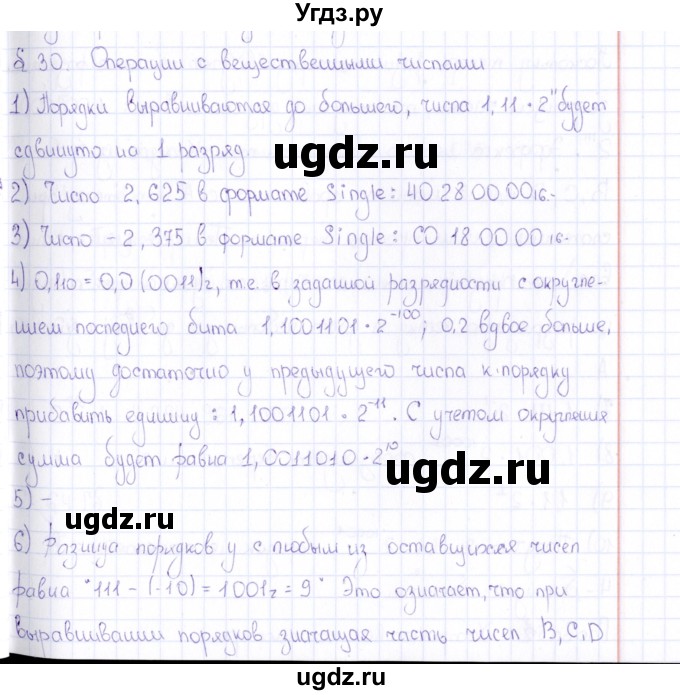 Угдз.ру
§ 30. Операции с вещественными числами
1) Порядки выравниваются до большего, числа 1,11 · 2¹¹ будет
сдвинуто на 1 разряд.
ugdz.ru
2) Число 2,625 в формате Single: 40 28 00 00₁₆.
ugdz.ru
3) Число -2,375 в формате Single: C0 18 00 00₁₆.
4) 0,1₁₀ = 0,0(0011)₂, т.е. в заданной разрядности с округле-
нием последнего бита 1,1001101 · 2⁻¹⁰⁰; 0,2 вдвое больше,
ugdz.ru
поэтому достаточно у предыдущего числа к порядку
прибавить единицу: 1,1001101 · 2⁻¹¹. С учетом округления
сумма будет равна 1,0011010 · 2¹⁰
ugdz.ru
5) -
ugdz.ru
6) Разница порядков у с любым из оставшихся чисел
равна "111 - (-10) = 1001₂ = 9" Это означает, что при
выравнивании порядков значащая часть чисел B, C, D
ugdz.ru